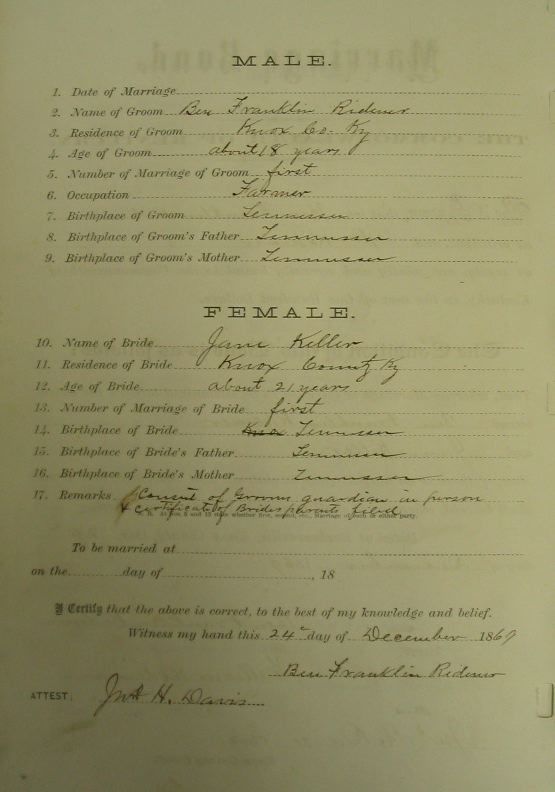 MALE.
1. Date of Marriage
2. Name of Groom Ben Franklin Ridener
3. Residence of Groom Knox Co. Ky
4. Age of Groom about 18 years
5. Number of Marriage of Groom first
6. Occupation Farmer
7. Birthplace of Groom Tennessee
8. Birthplace of Groom's Father Tennessee
9. Birthplace of Groom's Mother Tennessee
FEMALE.
10. Name of Bride Jane Keller
11. Residence of Bride Knox County Ky
12. Age of Bride about 21 years
13. Number of Marriage of Bride first
14. Birthplace of Bride Knox Tennessee
15. Birthplace of Bride's Father Tennessee
16. Birthplace of Bride's Mother Tennessee
17. Remarks Consent of Grooms guardian in person
& certificate of Brides parents filed
To be married at
on the day of , 18
I Certify that the above is correct, to the best of my knowledge and belief.
Witness my hand this 24" day of December 1869
Ben Franklin Ridener
ATTEST: H. Davis